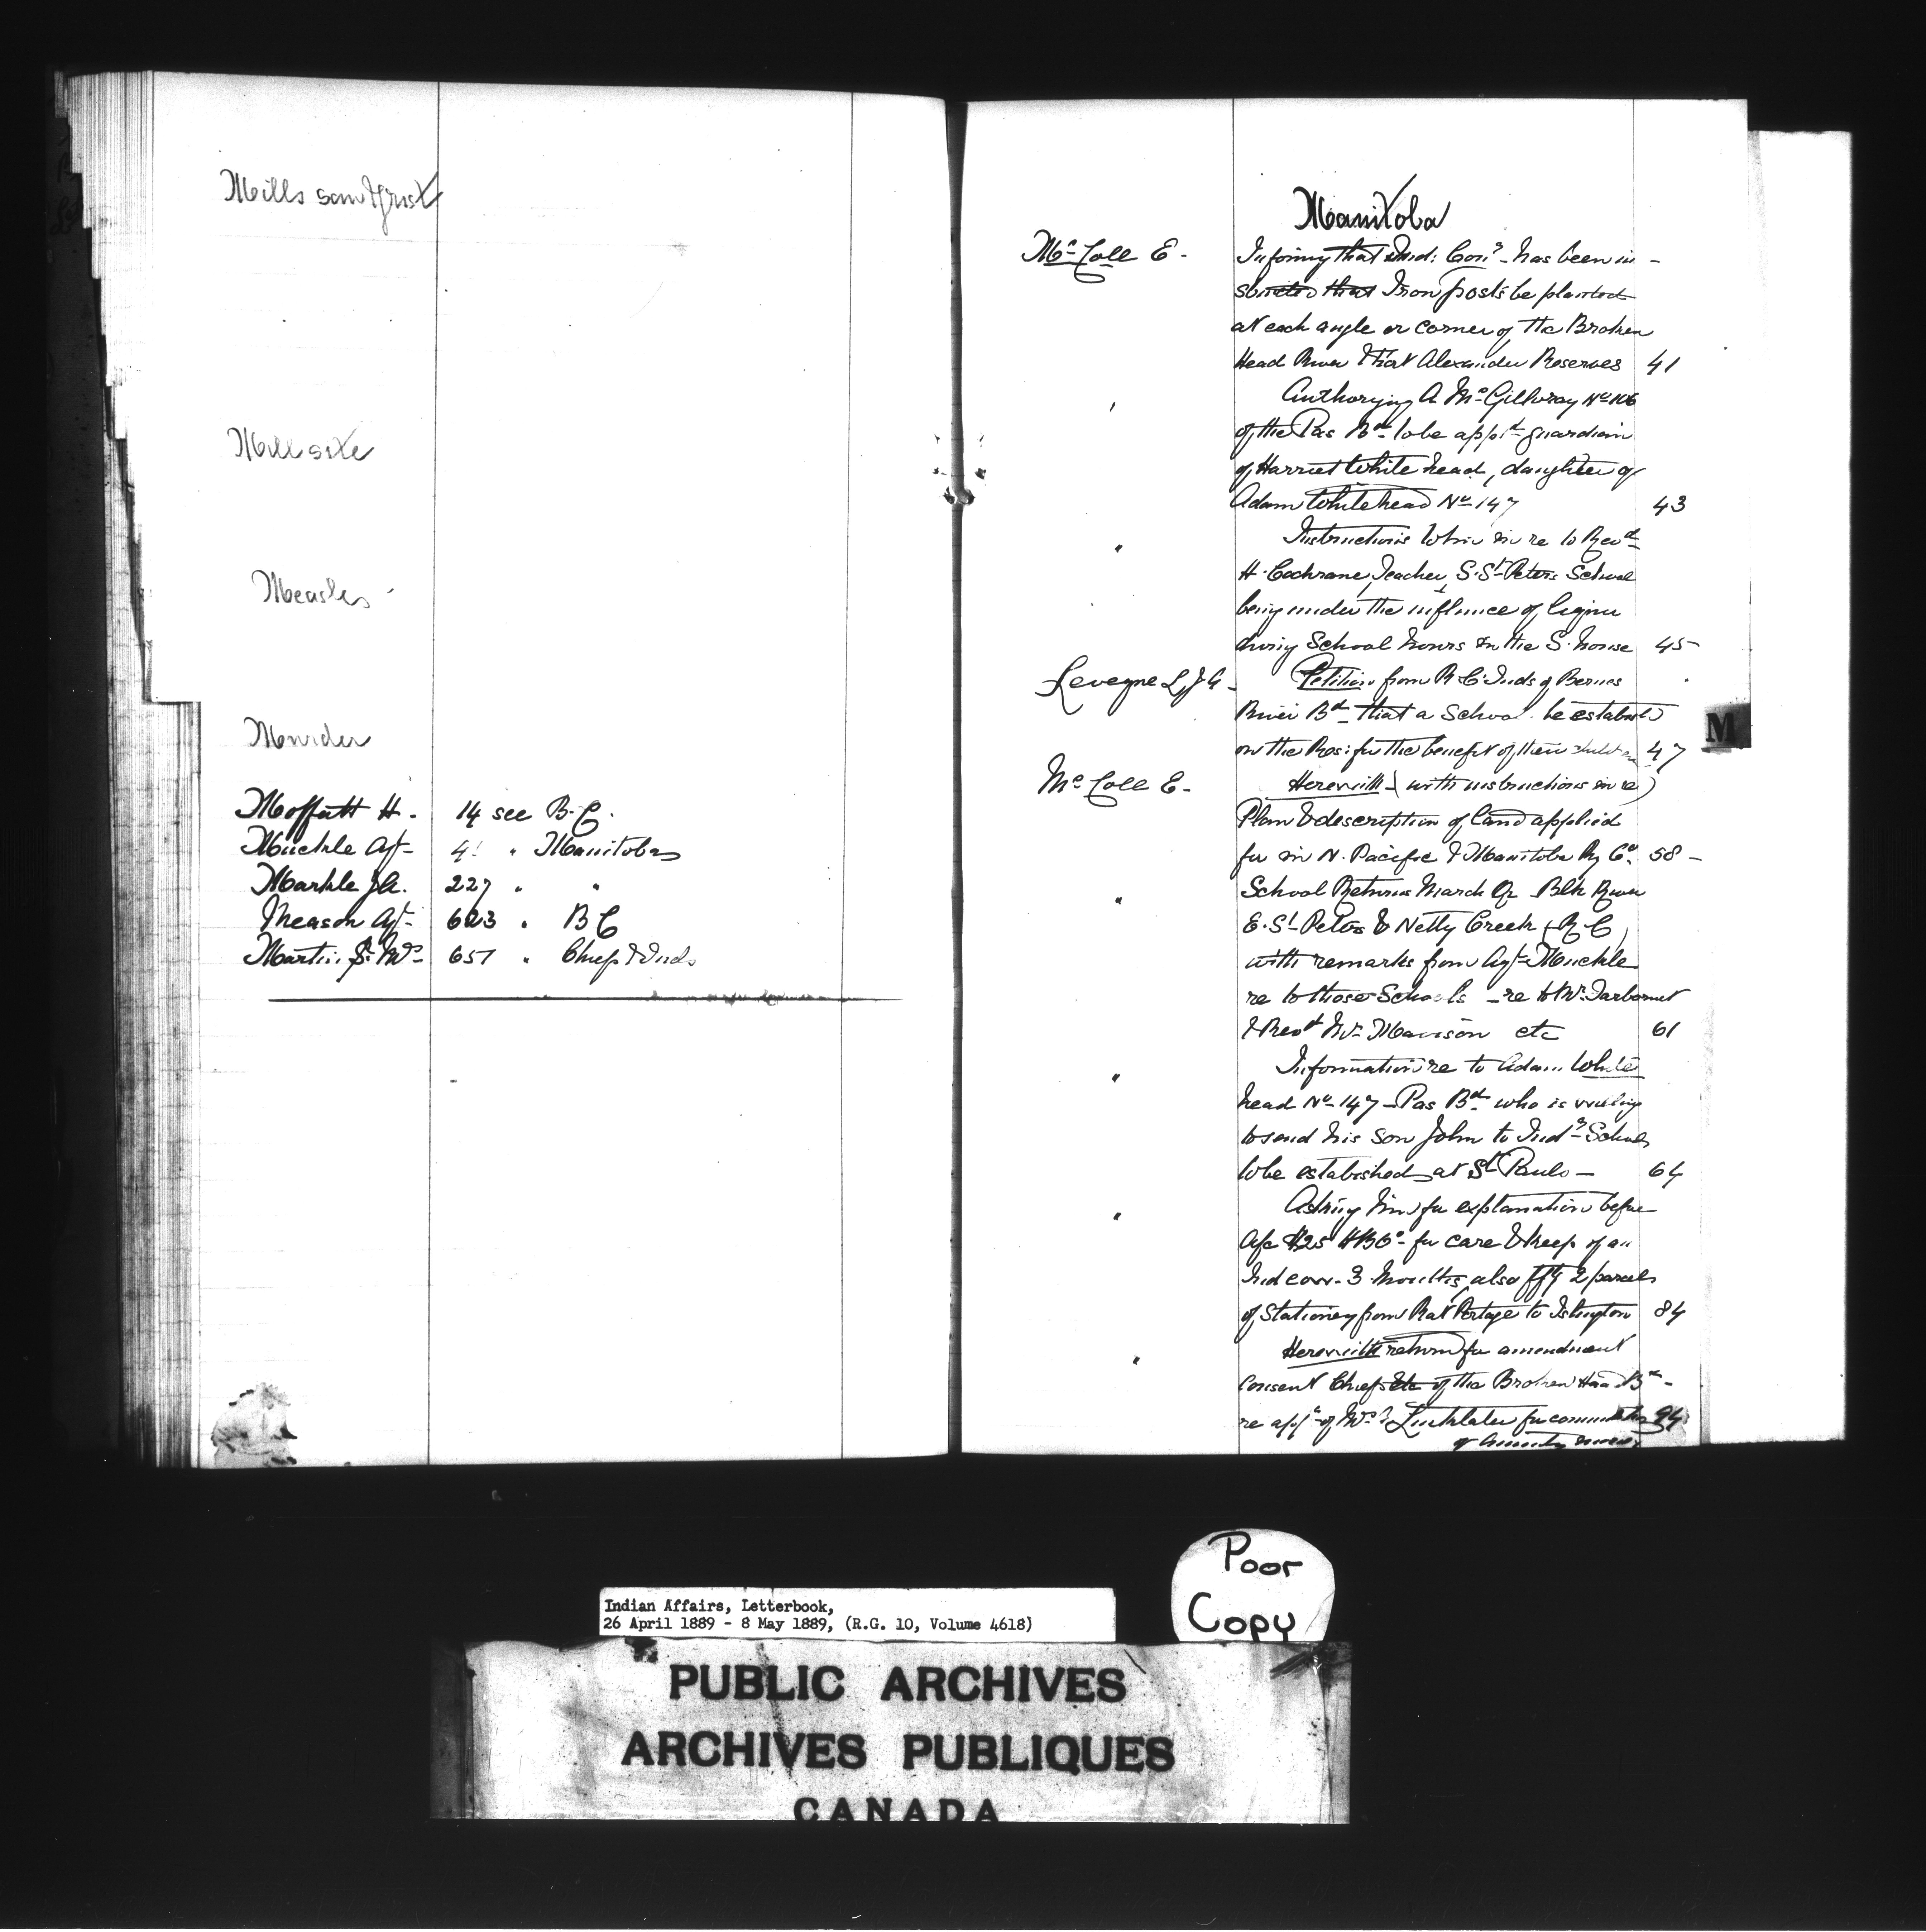 Mills saw & grist
Mill site
Measles
Murder
Moffatt H. 14 see B.C.
Muckle Agt 41 " Manitoba
Markle J.A. 227 " "
Meason Agt 623 " B C
Martin Wm 657 " Chief & Inds
Manitoba
McColl E. Informing that Ind: Comr has been in-
structed that Iron posts be planted
at each angle or corner of the Broken
Head River & Fort Alexander Reserves 41
' Authorizing A McGillvray No 106
of the Pas Bd to be appt guardian
of Harriet White head, daughter of
Adam Whitehead No 147 43
" Instructions to him in re to Revd
H. Cochrane, Teacher, S. St Peters School
being under the influence of liquor
during School hours in the S. house 45
Leveque L.J.A. Petition from R C Inds of Berens
River Bd that a School be establd
on the Res: for the benefit of their children 47
McColl E. Herewith (with instructions in re)
Plan & description of land applied
for in N. Pacific & Manitoba Ry Co. 58
" School Returns March Qr Blk River
E. St Peters & Netly Creek (R.C)
with remarks from Agt Muckle
re to those Schools - re to Mr
& Revd Mr etc 61
" Information re to Adam White
head No 147 Pas Bd who is willing
to send his son John to Indl School
to be established at St Pauls - 64
" Asking him for explanation before
a/c $25 HBCo for care & keep of an
Ind cow 3 months, also 2 parcels
of Stationery from Rat Portage to Islington 84
" Herewith return for amendment
consent Chiefs Etc of the Broken Head Bd
re appn of Mrs Linklater for commutation 94
of annuity money
M
Poor
Copy
Indian Affairs, Letterbook,
26 April 1889 - 8 May 1889, (R.G. 10, Volume 4618)
PUBLIC ARCHIVES
ARCHIVES PUBLIQUES
CANADA